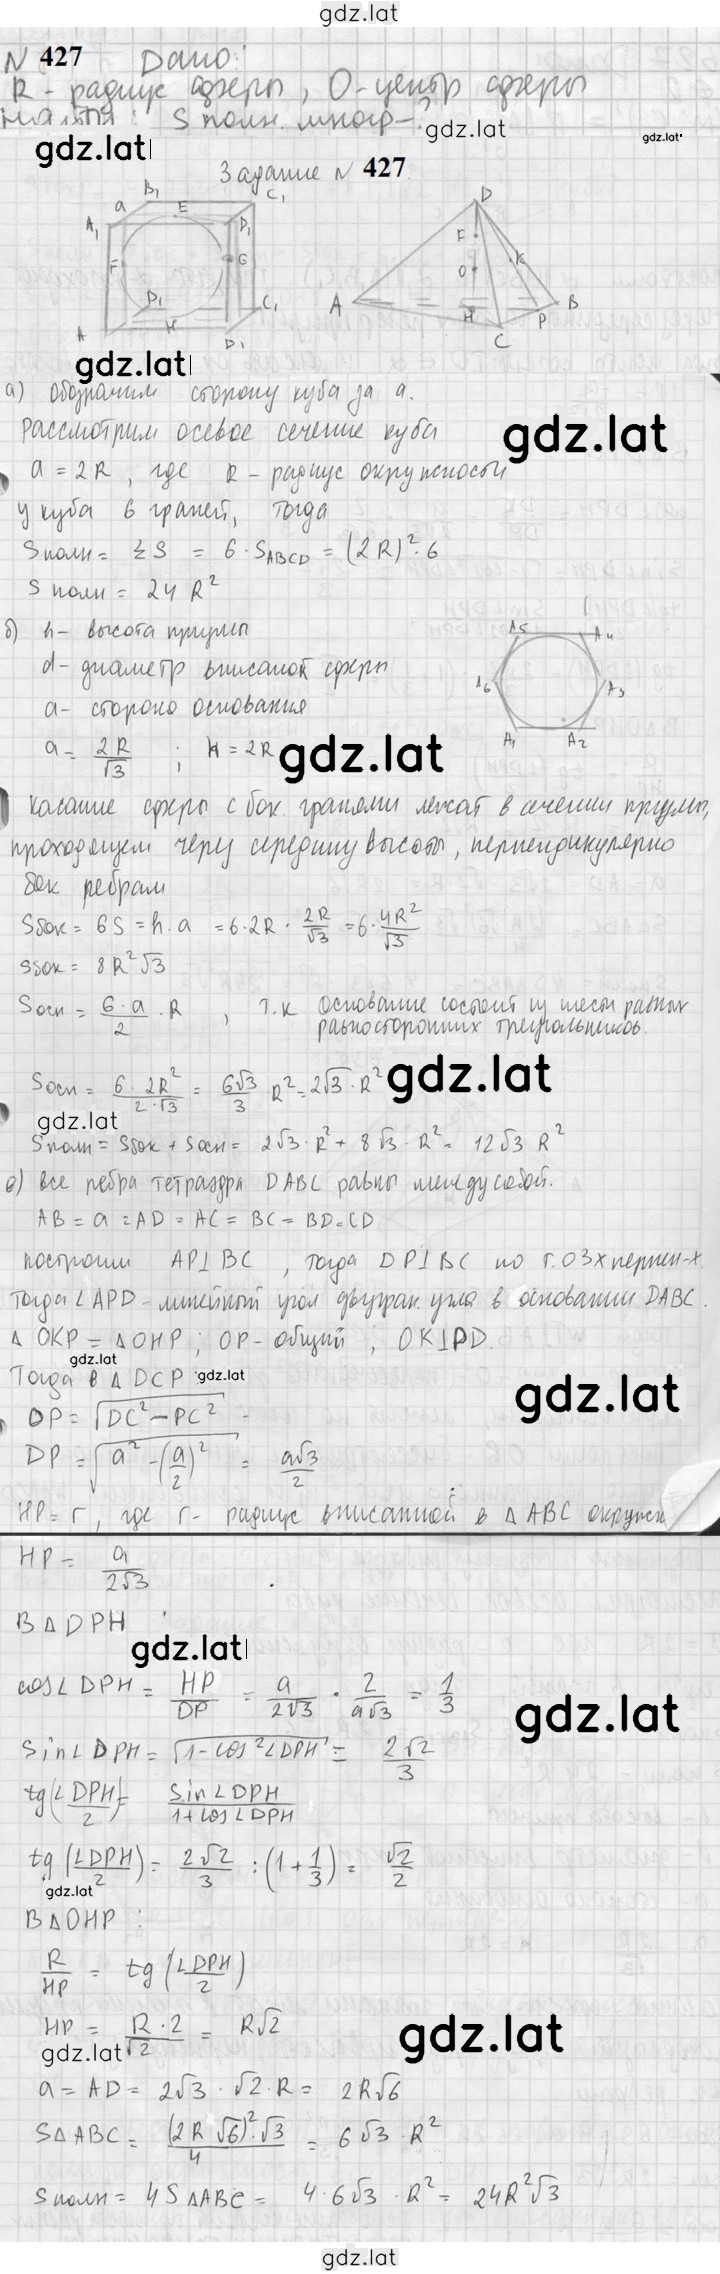 gdz.lat
N 427 Дано:
R - радиус сферы, O - центр сферы
найти: S полн. многр-?
gdz.lat
gdz.lat
gdz.lat
Задание N 427
B₁ C₁ D
a E
A₁ D₁ F
F G O K
D₁ C₁ A H B
A H D₁ C P
gdz.lat
а) обозначим сторону куба за a.
Рассмотрим осевое сечение куба
gdz.lat
a = 2R, где R - радиус окружности
у куба 6 граней, тогда
Sполн = ΣS = 6·S_ABCD = (2R)²·6
S полн = 24 R²
б) h - высота призмы
A₅ A₄
d - диаметр вписаной сферы
A₆ A₃
a - сторона основания
A₁ A₂
a = 2R/√3 ; h = 2R
gdz.lat
касание сферы с бок. гранями лежат в сечении призмы,
проходящем через середину высоты, перпендикулярно
бок ребрам
Sбок = 6S = h·a = 6·2R · 2R/√3 = 6· 4R²/√3
Sбок = 8R²√3
Sосн = 6·a/2 · R , т.к основание состоит из шести равных
равносторонних треугольников.
Sосн = 6·2R²/2·√3 = 6√3/3 · R² = 2√3·R²
gdz.lat
gdz.lat
Sполн = Sбок + Sосн = 2√3·R² + 8√3·R² = 12√3 R²
в) все ребра тетраэдра DABC равны между собой.
AB = a = AD = AC = BC = BD = CD
построим AP⊥BC, тогда DP⊥BC по т. о 3х перпен-х
Тогда ∠APD - линейный угол двугран. угла в основании DABC.
△OKP = △OHP; OP - общий, OK⊥PD.
gdz.lat
Тогда в △DCP
gdz.lat
gdz.lat
DP = √DC² − PC²
DP = √a² − (a/2)² = a√3/2
HP = r, где r - радиус вписанной в △ABC окружн
HP = a/2√3
В △DPH
gdz.lat
cos∠DPH = HP/DP = a/2√3 · 2/a√3 = 1/3
gdz.lat
Sin∠DPH = √1−cos²∠DPH = 2√2/3
tg(∠DPH/2) = Sin∠DPH/1+cos∠DPH
tg(∠DPH/2) = 2√2/3 : (1+1/3) = √2/2
gdz.lat
В △OHP :
R/HP = tg(∠DPH/2)
HP = R·2/√2 = R√2
gdz.lat
gdz.lat
a = AD = 2√3·√2·R = 2R√6
S△ABC = (2R√6)²·√3/4 = 6√3·R²
Sполн = 4S△ABC = 4·6√3·R² = 24R²√3
gdz.lat